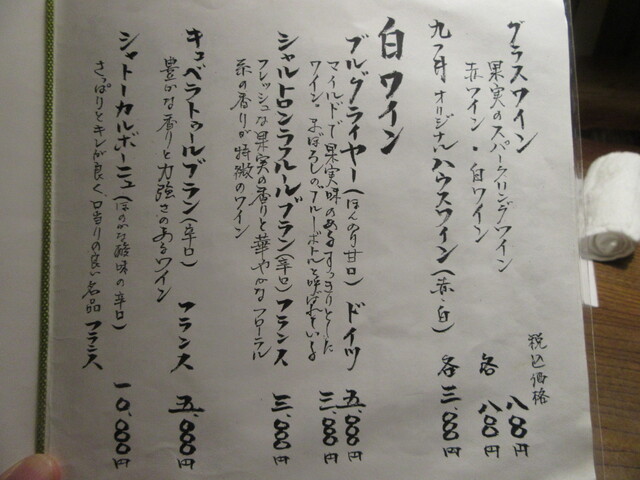 グラスワイン
税込価格
果実のスパークリングワイン 八〇〇円
赤ワイン・白ワイン 各 八〇〇円
オリジナルハウスワイン(赤・白) 各 三、〇〇〇円
白ワイン
ブルグライヤー(ほんのり甘口) ドイツ 五、〇〇〇円
マイルドで果実味のあるすっきりとした 三、〇〇〇円
ワイン。まぼろしのブルーボトルと呼ばれている
シャルトロンラフルールブラン(辛口) フランス 三、〇〇〇円
フレッシュな果実の香りと華やかなフローラル
系の香りが特徴のワイン
キュベラトゥルブラン(辛口) フランス 五、〇〇〇円
豊かな香りと力強さのあるワイン
シャトーカルボーニュ(ほのかな酸味の辛口) 一〇、〇〇〇円
さっぱりとキレが良く、口当りの良い名品 フランス